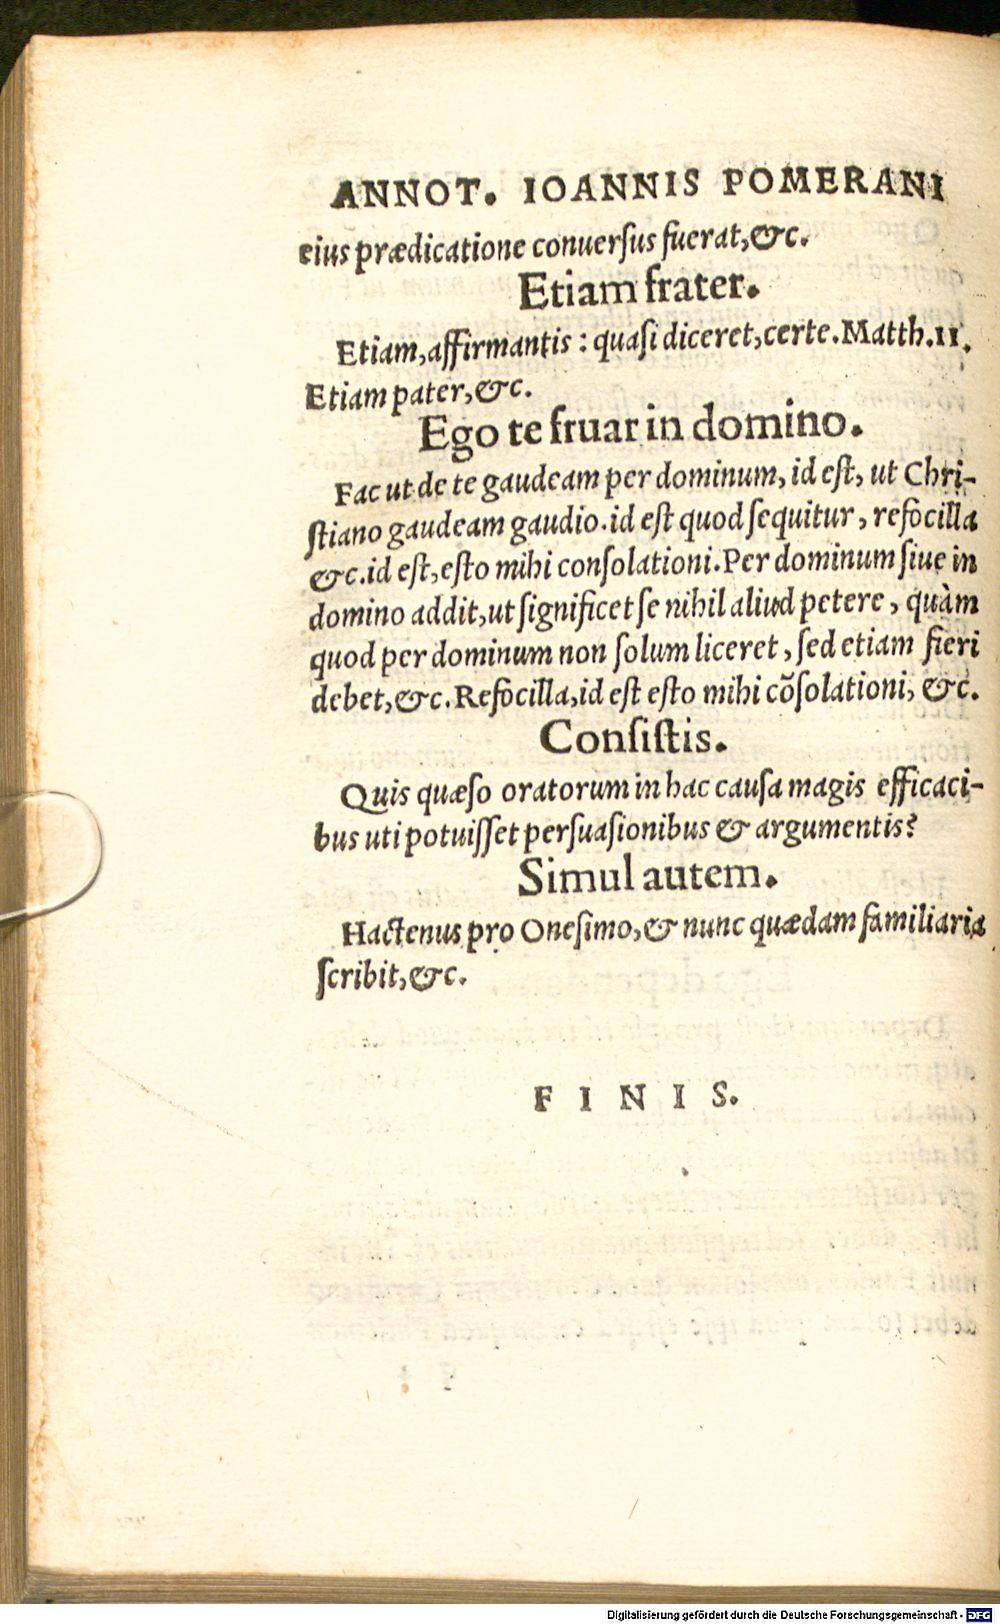 ANNOT. IOANNIS POMERANI
eius prædicatione conuerſus fuerat, &c.
Etiam frater.
Etiam, affirmantis : quaſi diceret, certe. Matth. 11.
Etiam pater, &c.
Ego te fruar in domino.
Fac ut de te gaudeam per dominum, id eſt, ut Chri-
ſtiano gaudeam gaudio. id eſt quod ſequitur, refocilla
&c. id eſt, eſto mihi conſolationi. Per dominum ſiue in
domino addit, ut ſignificet ſe nihil aliud petere, quàm
quod per dominum non ſolum liceret, ſed etiam fieri
debet, &c. Refocilla, id eſt eſto mihi cõſolationi, &c.
Conſiſtis.
Quis quæſo oratorum in hac cauſa magis efficaci-
bus uti potuiſſet perſuaſionibus & argumentis?
Simul autem.
Hactenus pro Oneſimo, & nunc quædam familiaria
ſcribit, &c.
FINIS.
Digitalisierung gefördert durch die Deutsche Forschungsgemeinschaft - DFG